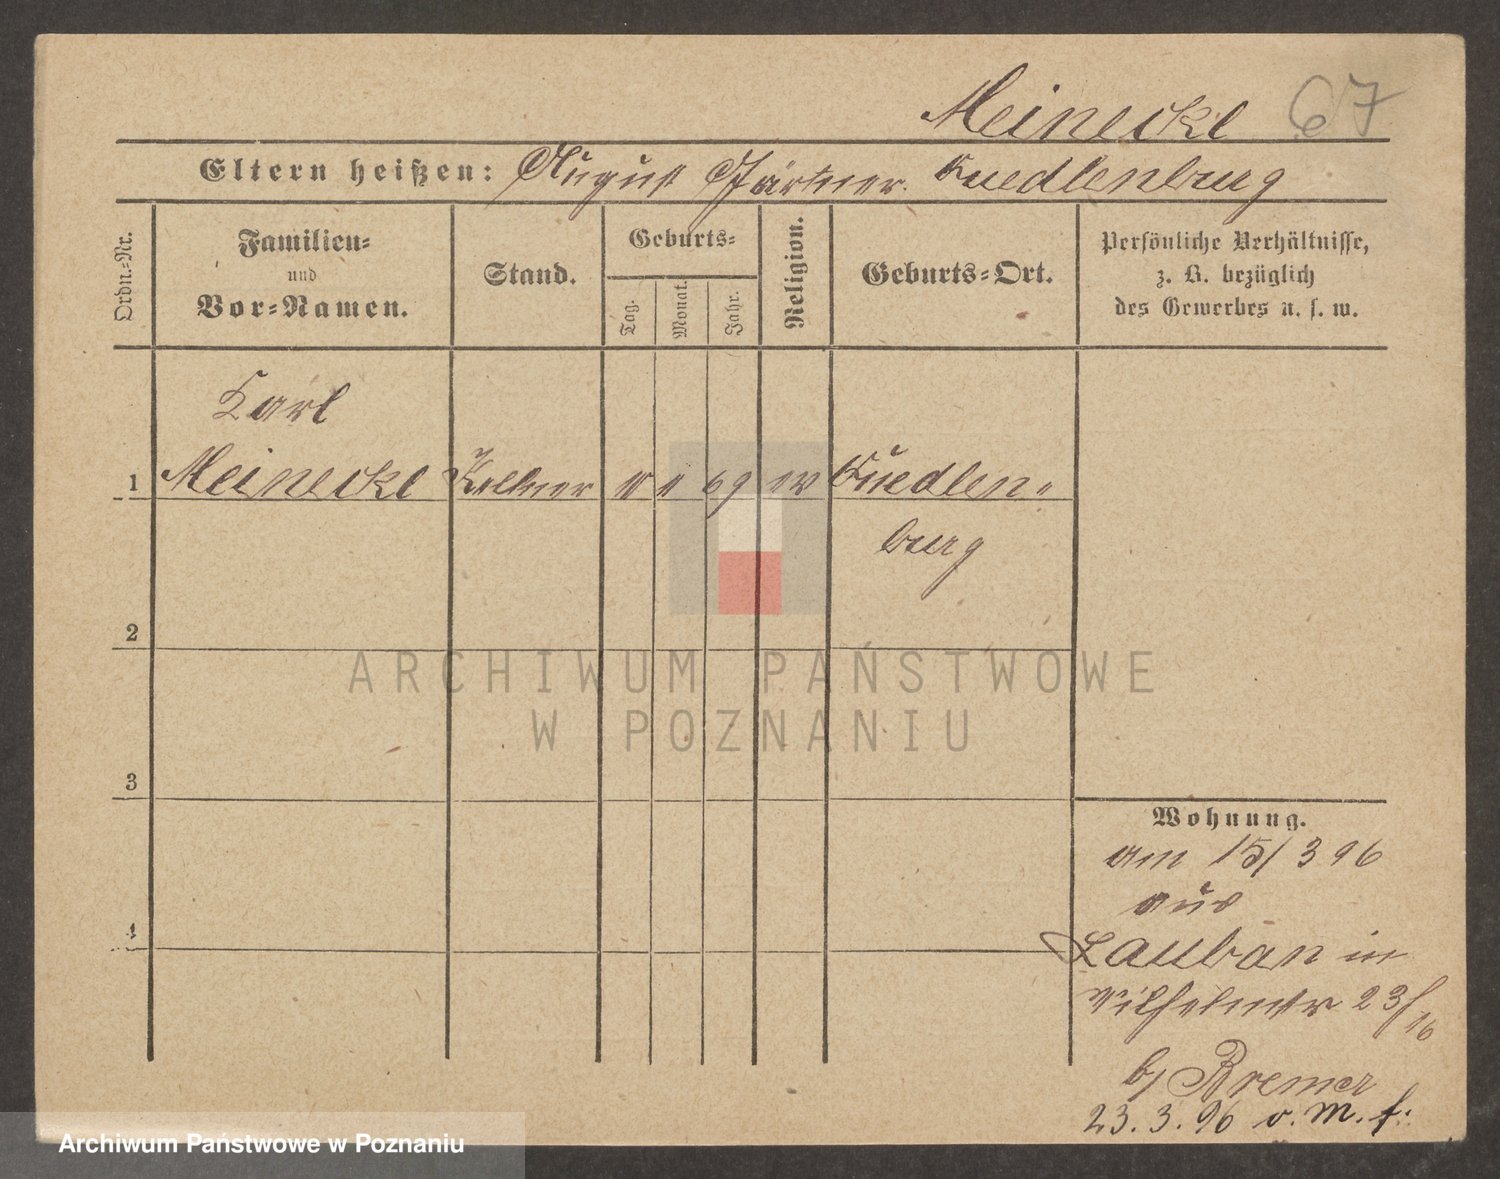 Meinecke 67
Eltern heißen: August Gärtner. Quedlenburg
Ordn.-Nr.
Familien-
und
Vor-Namen.
Stand.
Geburts-
Tag.
Monat.
Jahr.
Religion.
Geburts-Ort.
Persönliche Verhältnisse,
z. B. bezüglich
des Gewerbes u. s. w.
Karl
1 Meinecke Kellner 69 ev Quedlen-
burg
2
3
4
Wohnung.
am 15/3 96
aus
Lauban in
Wilhelmstr 23/
b/ Bremer
23. 3. 96 v. M. f.:
ARCHIWUM PAŃSTWOWE
W POZNANIU
Archiwum Państwowe w Poznaniu